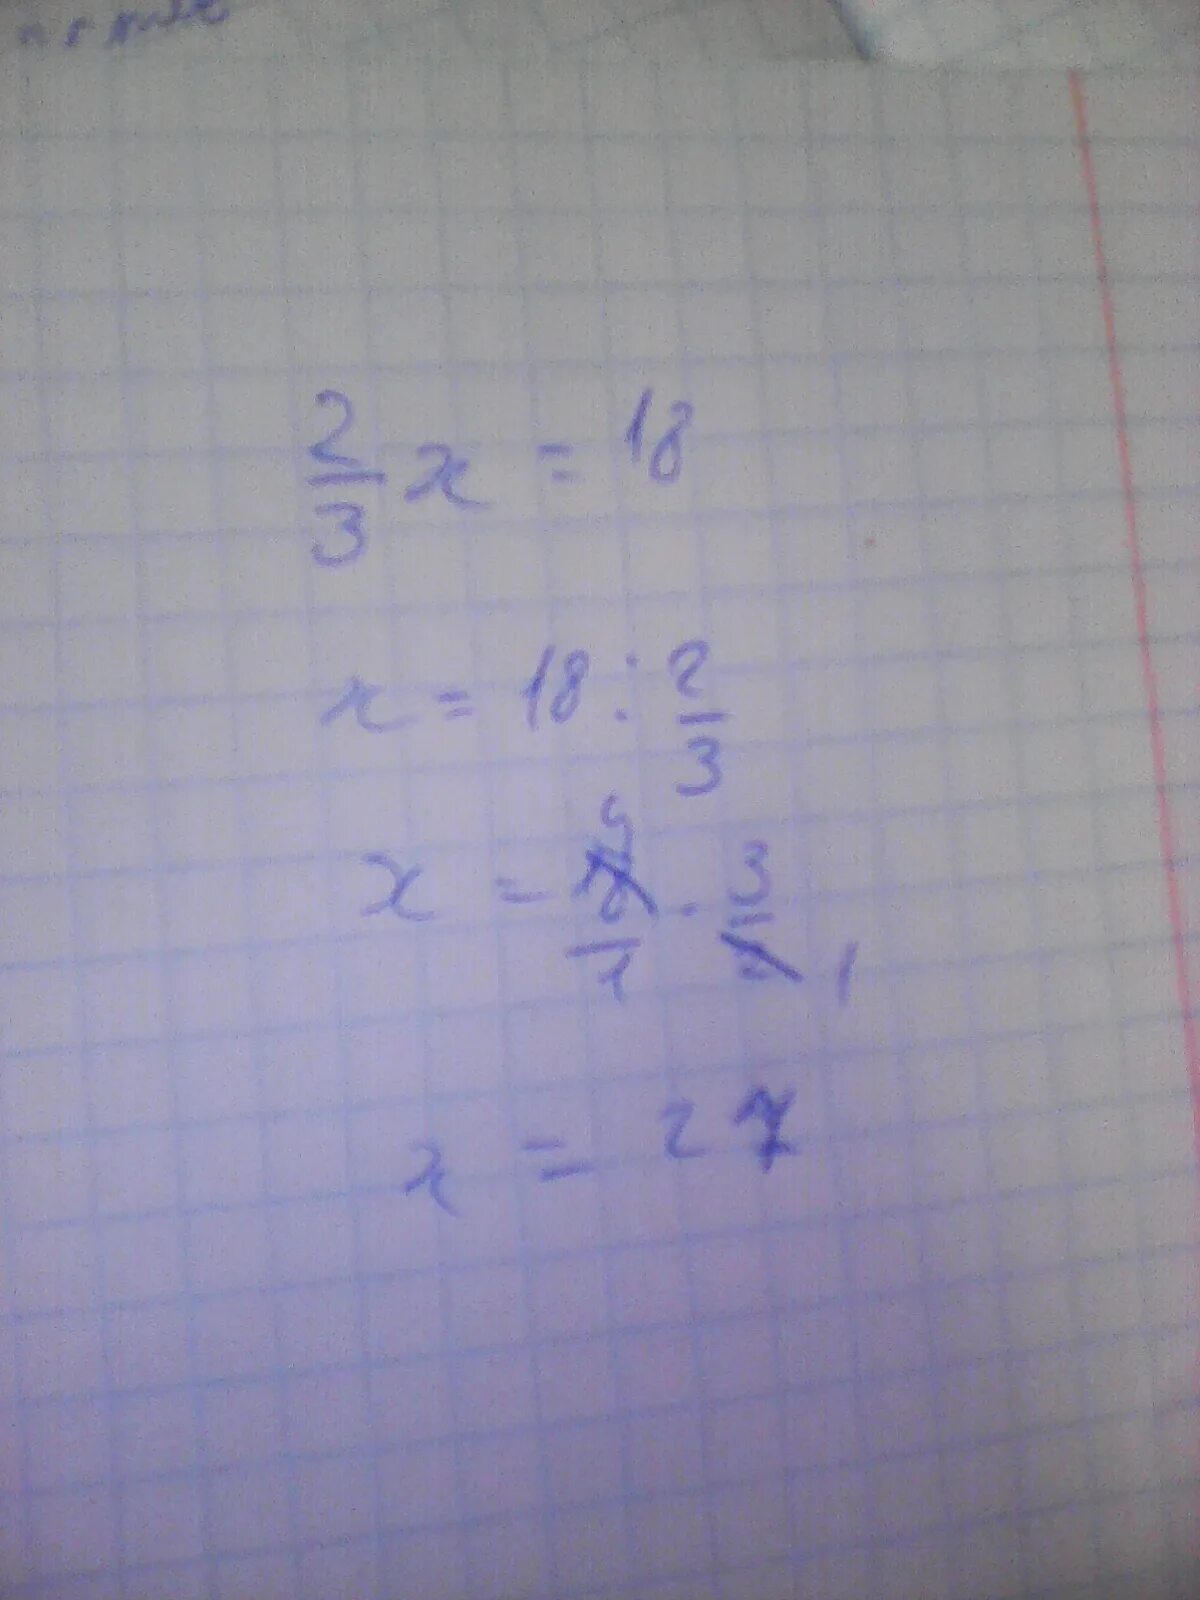 2/3 x = 18
x = 18 : 2/3
x = 18/1 · 3/2
9 1
x = 27